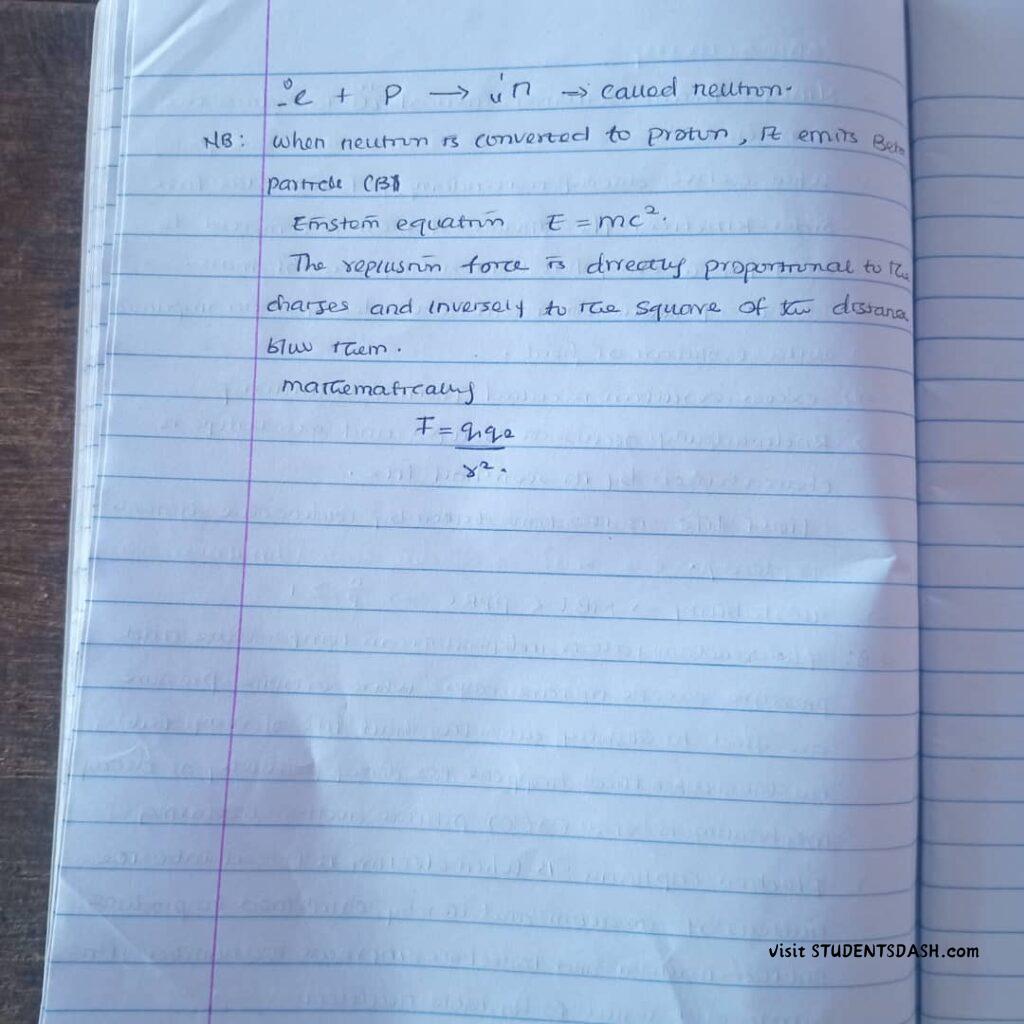 ⁰₋e + P → ¹₀n → called neutron.
NB: when neutron is converted to proton, It emits Beta
particle (B)
Einstein equation E = mc².
The replusion force is directly proportional to the
charges and inversely to the square of the distance
b/w them.
mathematically
F = q₁q₂
r².
visit STUDENTSDASH.com